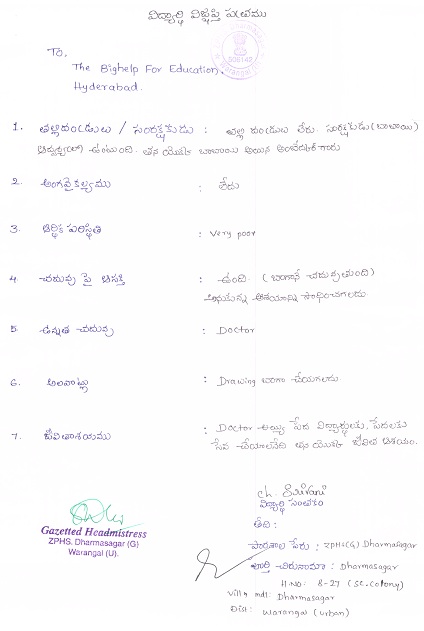 విద్యార్థి విజ్ఞప్తి పత్రము
To,
The Bighelp For Education,
Hyderabad.
506142
1. తల్లిదండ్రులు / సంరక్షకుడు : తల్లి దండ్రులు లేరు. సంరక్షకుడు (బాబాయి)
ఉంటుంది. తన యొక్క బాబాయి అయిన అంబేద్కర్ గారు
2. అంగవైకల్యము : లేదు
3. ఆర్థిక పరిస్థితి : Very poor
4. చదువు పై ఆసక్తి : ఉంది. (బాగానే చదువుతుంది)
అనుకున్న ఆశయాన్ని సాధించగలదు.
5. ఉన్నత చదువు : Doctor
6. అలవాట్లు : Drawing బాగా చేయగలదు
7. జీవితాశయము : Doctor అయ్యి పేద విద్యార్థులకు, పేదలకు
సేవ చేయాలనేది తన యొక్క జీవిత ఆశయం.
Ch. Sravani
విద్యార్థి సంతకం
తేది :
పాఠశాల పేరు : ZPHS(G) Dharmasagar
పూర్తి చిరునామా : Dharmasagar
H.No: 8-27 (SC-Colony)
Vill & mdl: Dharmasagar
Dist: Warangal (urban)
Gazetted Headmistress
ZPHS. Dharmasagar (G)
Warangal (U).